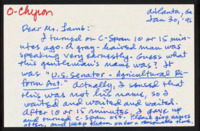 O-Chyron
Atlanta, Ga
Jan 30, '95
Dear Mr. Lamb:
I turned on C-Span 10 or 15
minutes ago. A gray-haired man was
speaking very earnestly. Guess what
this gentleman's name was? It
was "U.S. Senator - Agricultural Re-
form Act". Actually, I sensed that
this wasn't his name, so I
waited and waited and waited
after 10 or 15 minutes, I gave up
and turned C-Span off. Please give names
often, and keep them on for a